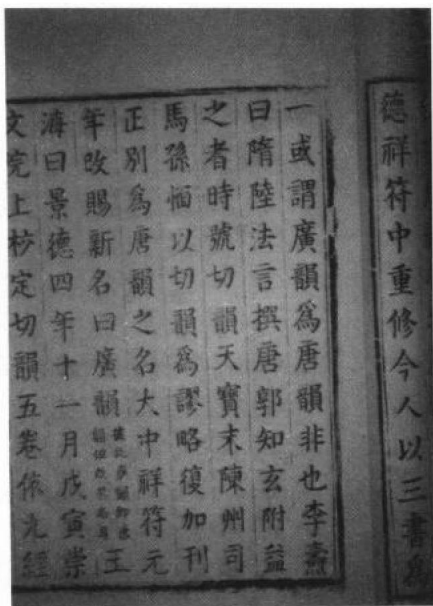 德祥符中重修今人以三書爲
一或謂廣韻爲唐韻非也李燾
曰隋陸法言撰唐郭知玄附益
之者時號切韻天寶末陳州司
馬孫愐以切韻爲謬略復加刊
正別爲唐韻之名大中祥符元
年改賜新名曰廣韻玉
海曰景德四年十一月戊寅崇
文院上校定切韻五卷依九經